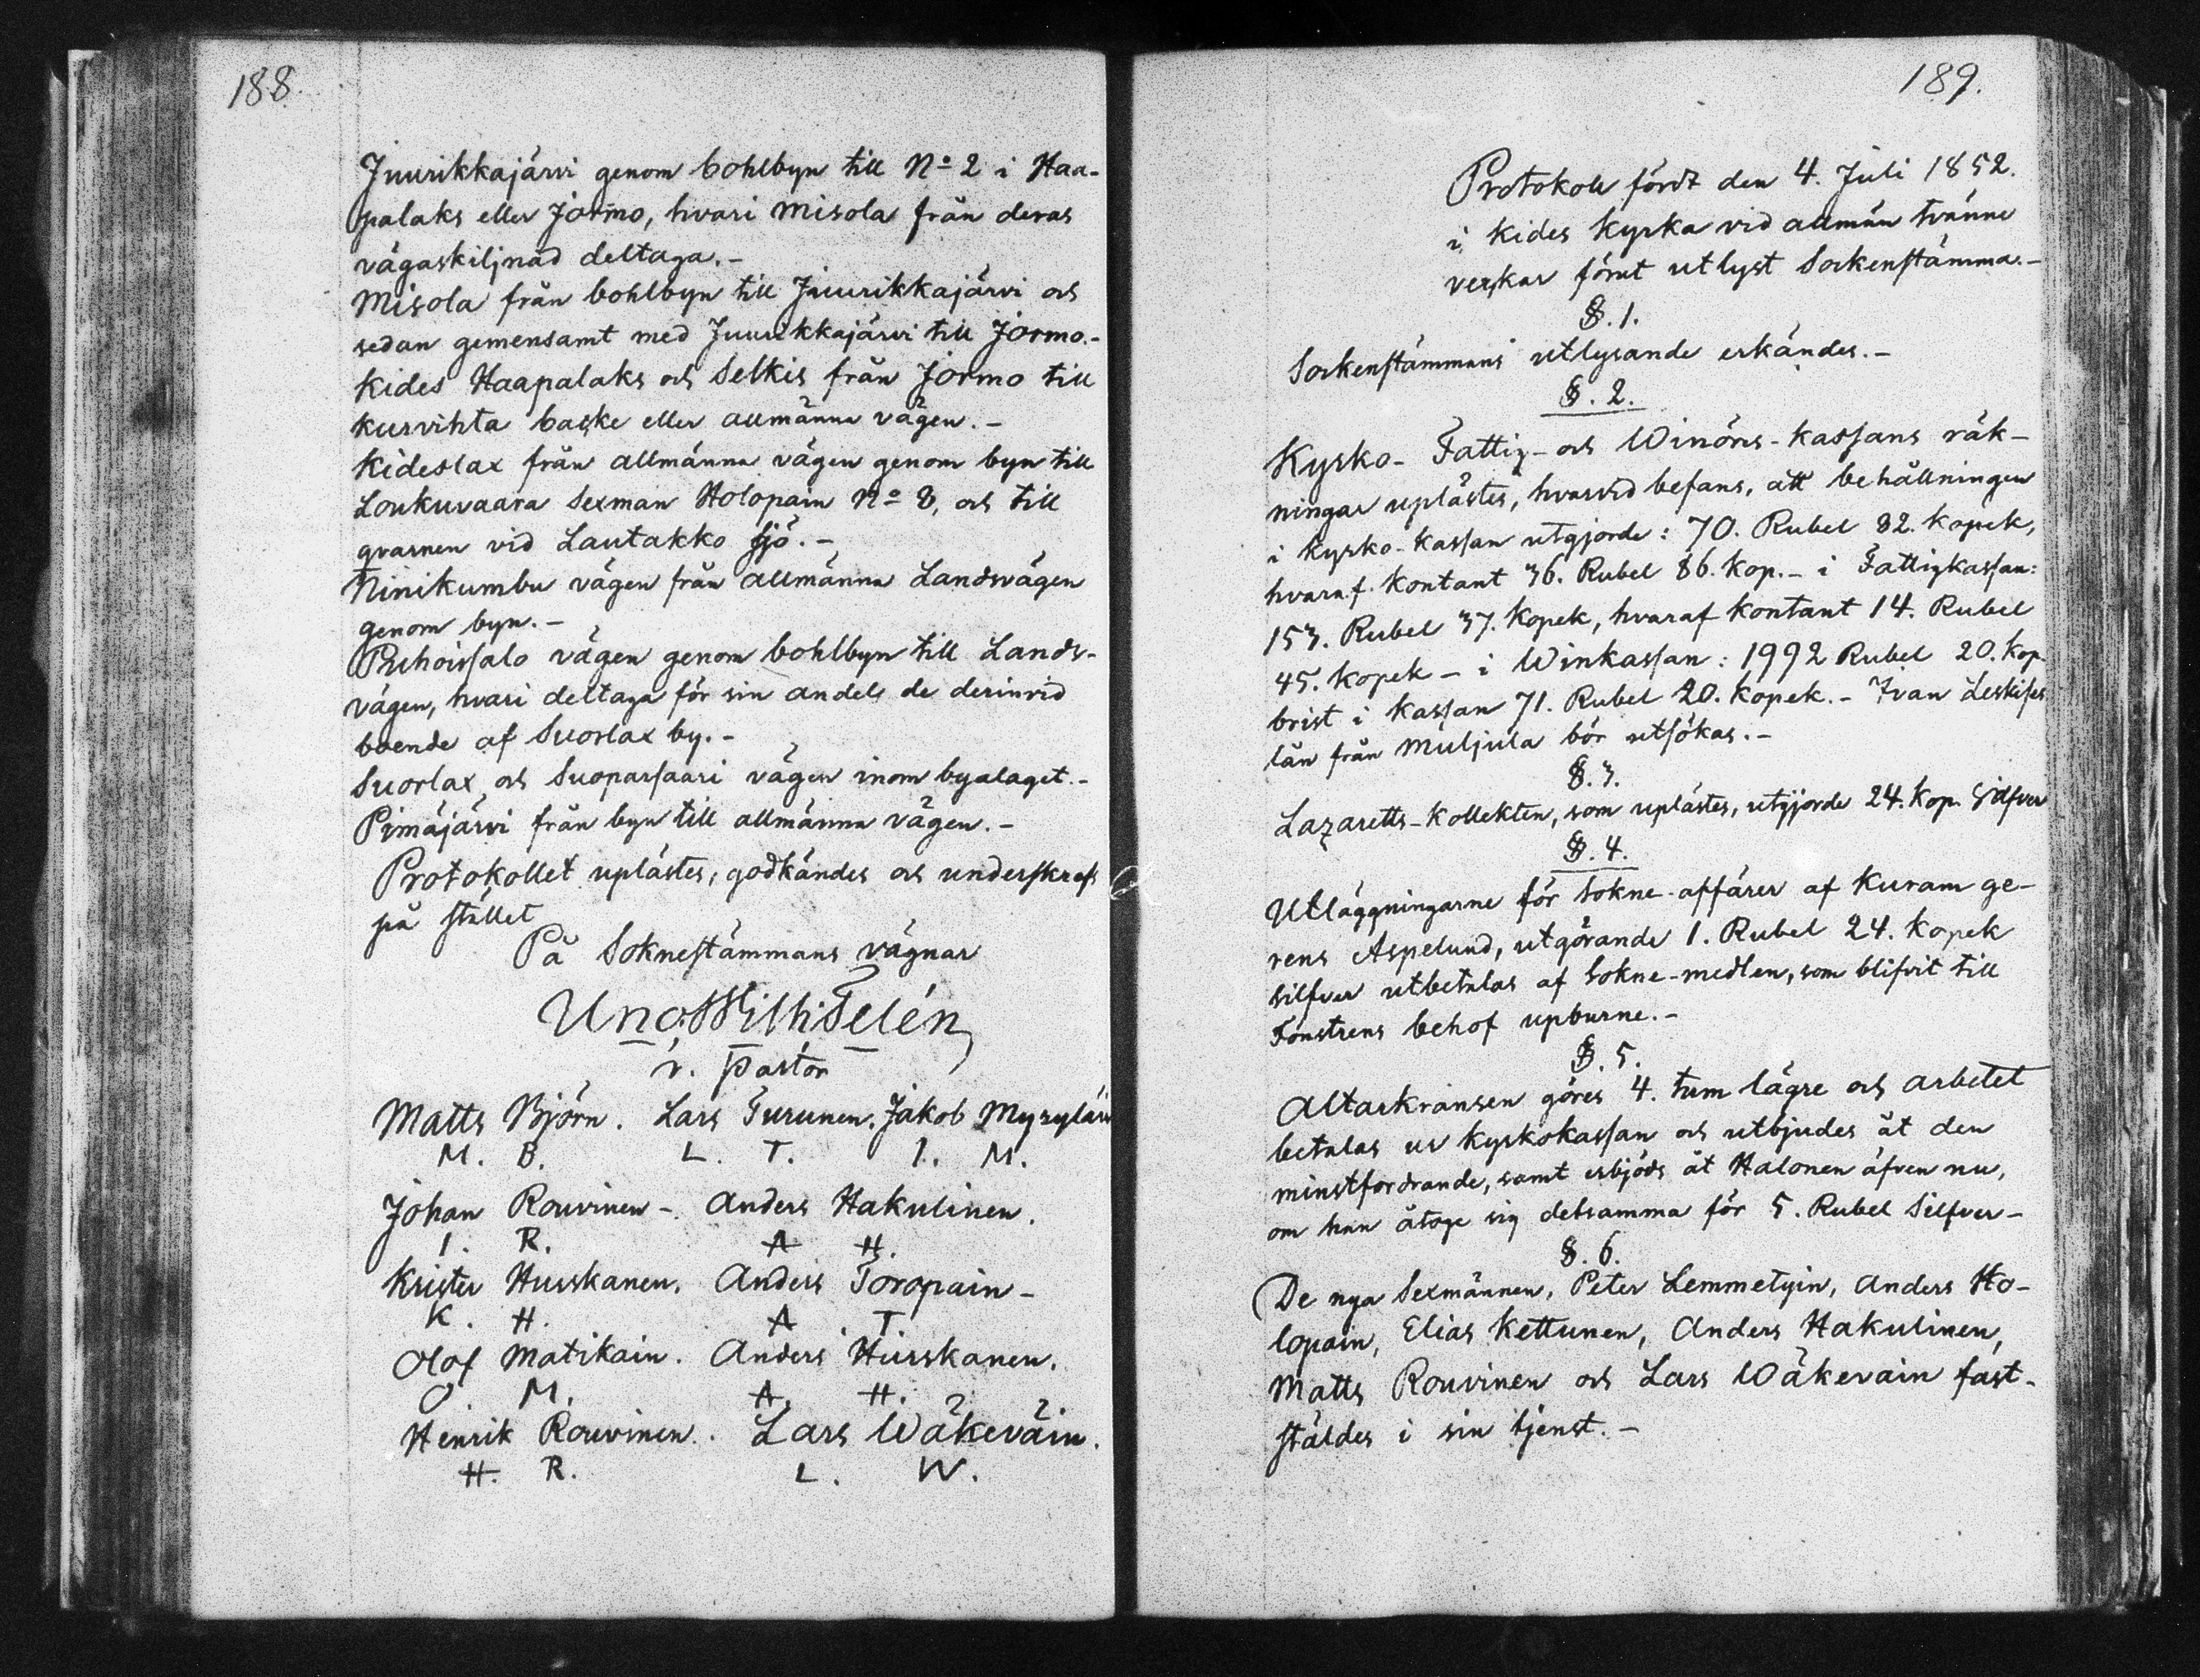 188.
Juurikkajärvi genom bohlbyn till No 2 i Haa-
palaks eller Jormo, hvari Misola från deras
vägaskiljnad deltaga.-
Misola från bohlbyn till Juurikkajärvi och
sedan gemensamt med Juurikkajärvi till Jormo.-
Kides Haapalaks och Selkis från Jormo till
Kurvihta backe eller allmänna vägen.-
Kideslax från allmänna vägen genom byn till
Loukuvaara Sexman Holopain No 8, och till
qvarnen vid Lautakko sjö.-
Ninikumbu vägen från allmänna Landsvägen
genom byn.-
Puhoissalo vägen genom bohlbyn till Lands-
vägen, hvari deltaga för sin andel de derinvid
boende af Suorlax by.-
Suorlax och Suoparsaari vägen inom byalaget.-
Pimäjärvi från byn till allmänna vägen.-
Protokollet uplästes, godkändes och underskrefs
på stället
På Soknestämmans vägnar
Uno Wilh: Telén
v. Pastor
Matts Björn. Lars Turunen. Jakob
M. B. L. T. I. M.
Johan Rouvinen-. Anders Hakulinen.
I. R. A H.
Krister Hurskanen. Anders Toropain-
K. H. A T.
Olof Matikain. Anders Hurskanen.
O M. A. H.
Henrik Rouvinen. Lars Wäkeväin.
H. R. L. W.
189.
Protokoll fördt den 4. Juli 1852.
i Kides Kyrka vid allmän tvänne
veckor förut utlyst Sockenstämma.-
§. 1.
Sockenstämmans utlysande erkändes.-
§. 2.
Kyrko- Fattig- och Winörs-kassans räk-
ningar uplästes, hvarvid befans, att behållningen
i kyrko-kassan utgjorde: 70. Rubel 82. kopek,
hvaraf kontant 36. Rubel 86. kop.- i Fattigkassan:
153. Rubel 37. kopek, hvaraf kontant 14. Rubel
45. kopek - i Winkassan: 1992 Rubel 20. kop.
brist i kassan 71. Rubel 20. kopek.- Ivan Leskises
lån från Muljula bör utsökas.-
§. 3.
Lazaretts-Kollekten, som uplästes, utgjorde 24. kop. Silfver
§. 4.
Utläggningarne för Sokne-affärer af Kuram ge-
rens Aspelund, utgörande 1. Rubel 24. kopek
silfver utbetalas af Sokne-medlen, som blifvit till
Fönstrens behof upburne.-
§. 5.
Altarkransen göres 4. tum lägre och arbetet
betalas ur Kyrkokassan och utbjudes åt den
minstfordrande, samt erbjöds åt Halonen äfven nu,
om han åtoge sig detsamma för 5. Rubel Silfver-
§. 6.
De nya Sexmännen, Peter Lemmetyin, Anders Ho-
lopain, Elias Kettunen, Anders Hakulinen,
Matts Rouvinen och Lars Wäkevain fast-
städes i sin tjenst.-